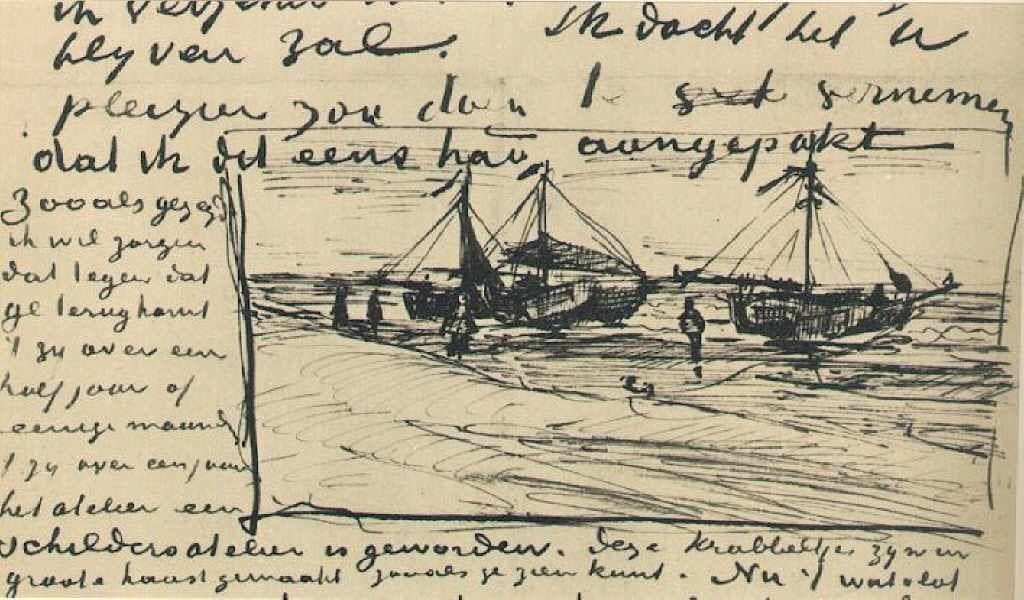 ik verzeker
blyven zal. Ik dacht het u
pleizier zou doen te vernemen
dat ik dit eens had aangepakt
Zooals gezegd
ik wil zorgen
dat tegen dat
ge terugkomt
't zy over een
half jaar of
eenige maand
't zy over een jaar
het atelier een
schildersatelier is geworden. Deze krabbeltjes zyn in
groote haast gemaakt zooals ge zien kunt. Nu 't wat vlot